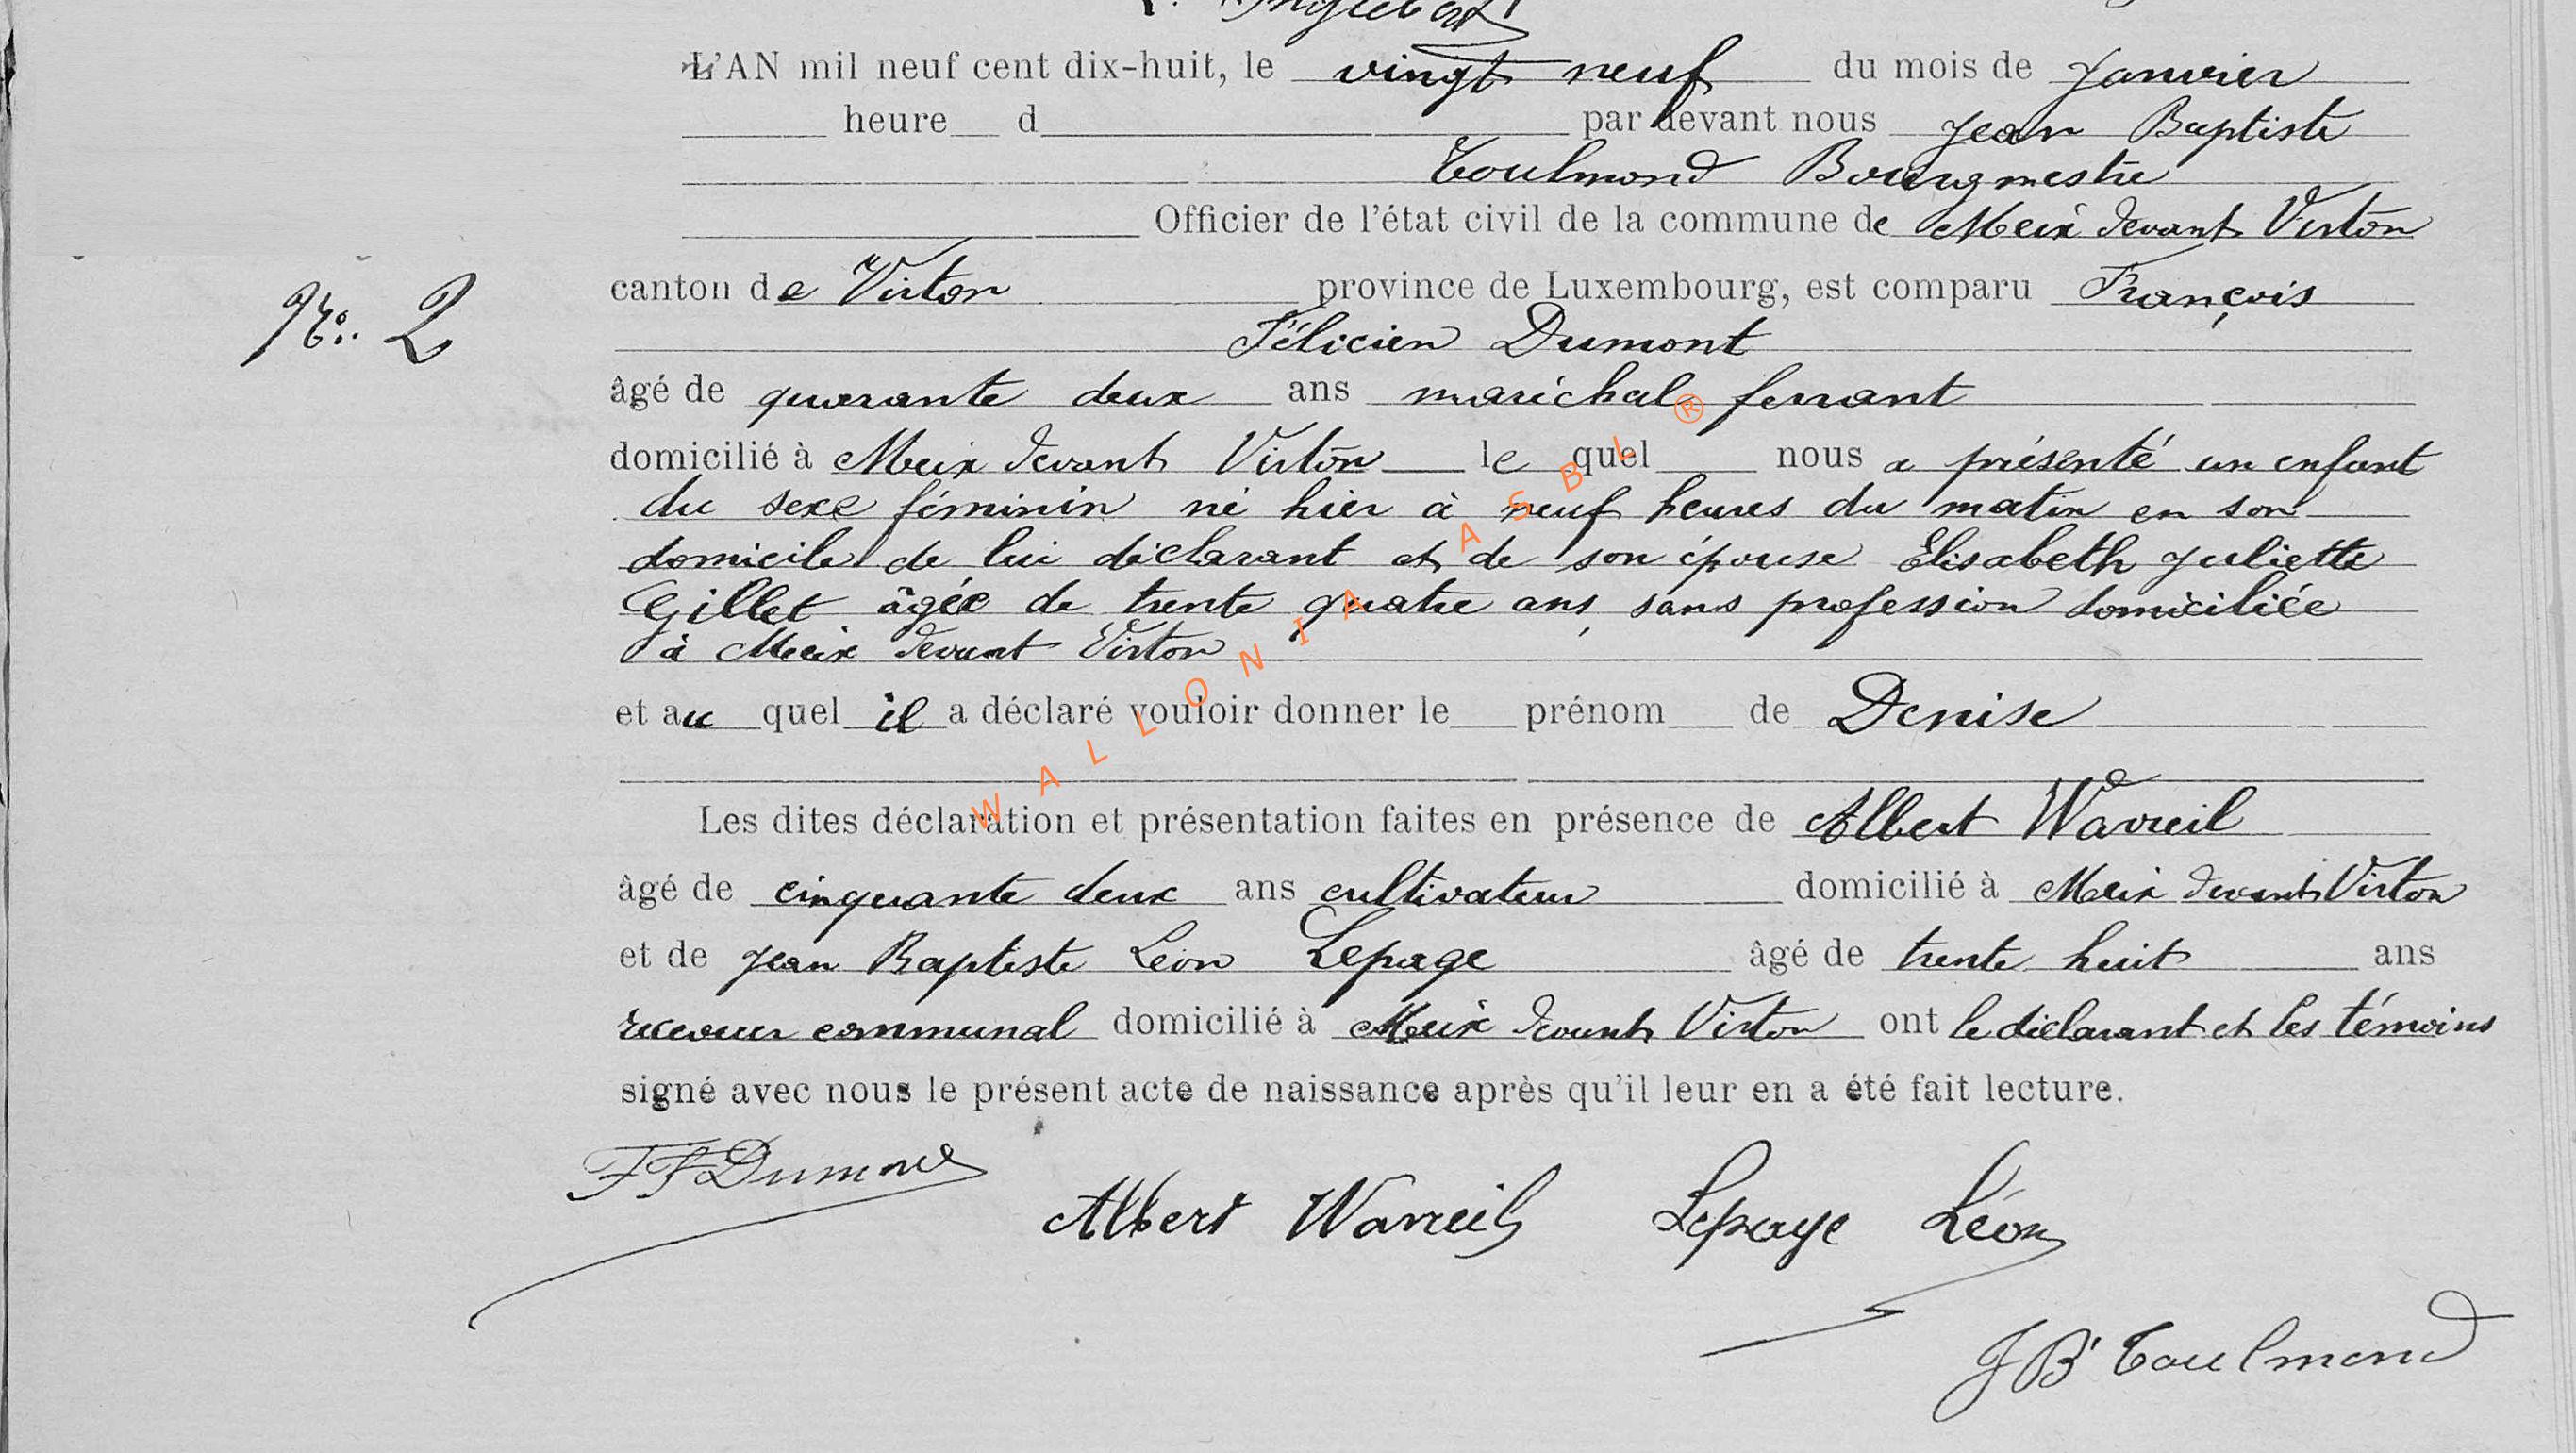 L'AN mil neuf cent dix-huit, le vingt neuf du mois de Janvier
heure d par devant nous Jean Baptiste
Toulmond Bourgmestre
Officier de l'état civil de la commune de Meix devant Virton
No. 2
canton de Virton province de Luxembourg, est comparu François
Félicien Dumont
âgé de quarante deux ans maréchal ferrant
domicilié à Meix devant Virton le quel nous a présenté un enfant
du sexe féminin né hier à neuf heures du matin en son
domicile de lui déclarant et de son épouse Elisabeth Juliette
Gillet âgée de trente quatre ans, sans profession domiciliée
à Meix devant Virton
et au quel il a déclaré vouloir donner le prénom de Denise
Les dites déclaration et présentation faites en présence de Albert Warreil
âgé de cinquante deux ans cultivateur domicilié à Meix devant Virton
et de Jean Baptiste Léon Lepage âgé de trente huit ans
receveur communal domicilié à Meix devant Virton ont le déclarant et les témoins
signé avec nous le présent acte de naissance après qu'il leur en a été fait lecture.
FF Dumont
Albert Warreil Lepage Léon
JBt Toulmond
WALLONIA ASBL ®